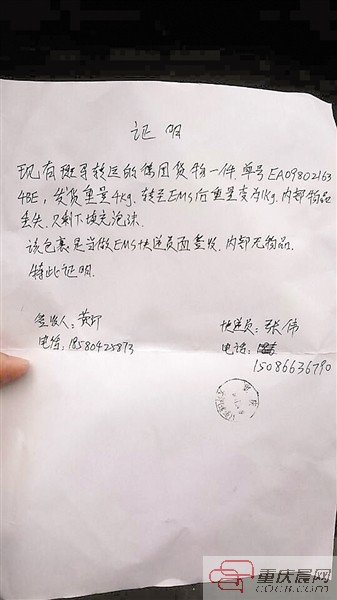 证明
现有斑马转运的德国货物一件,单号EA09802163
4BE,发货重量4kg,转至EMS后重量变为1kg.内部物品
丢失,只剩下填充泡沫.
该包裹是当做EMS快递员面签收,内部无物品.
特此证明.
签收人:黄
电话:18580425873
快递员:张伟
电话:
15086636790
重庆晨网
COCM.COM